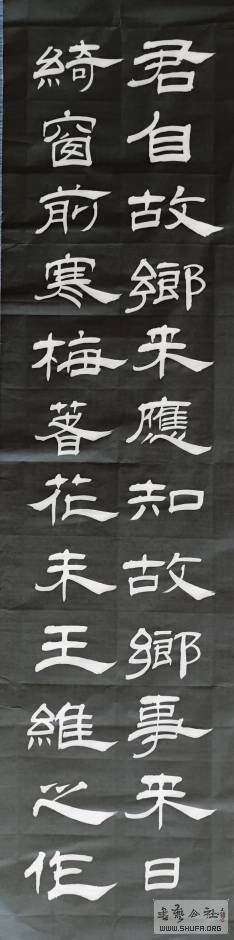 君自故鄉来應知故鄉事来日
綺窗前寒梅著花未王維之作
書藝公社
WWW.SHUFA.ORG